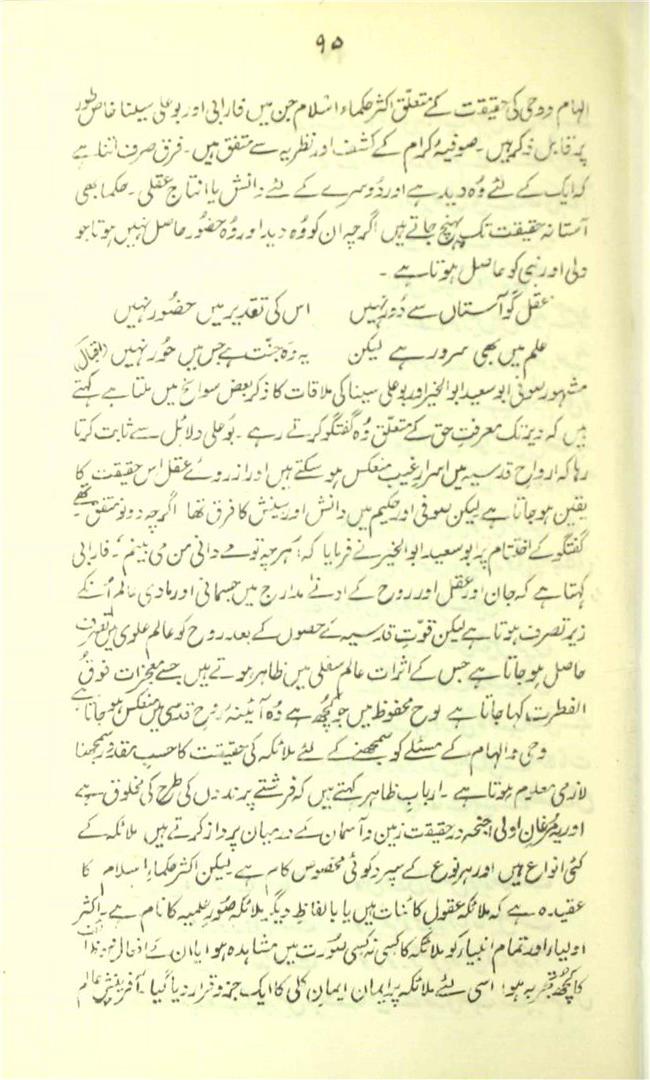 ۹۵
الہام و وحی کی حقیقت کے متعلق اکثر حکماء اسلام جن میں فارابی اور بو علی سینا خاص طور
پر قابل ذکر ہیں۔ صوفیۂ کرام کے کشف اور نظریہ سے متفق ہیں۔ فرق صرف اتنا ہے
کہ ایک کے لئے وُہ دید ہے اور دُوسرے کے لئے دانش یا انتاج عقلی۔ حکما بھی
آستانۂ حقیقت تک پہنچ جاتے ہیں اگرچہ ان کو وُہ دید اور وُہ حضُور حاصل نہیں ہوتا جو
ولی اور نبی کو حاصل ہوتا ہے۔
عقل گو آستاں سے دُور نہیں اس کی تقدیر میں حضُور نہیں
علم میں بھی سرور ہے لیکن یہ وُہ جنّت ہے جس میں حُور نہیں (اقبال)
مشہور صوفی ابو سعید ابو الخیر اور بو علی سینا کی ملاقات کا ذکر بعض سوانح میں ملتا ہے کہتے
ہیں کہ دیر تک معرفتِ حق کے متعلق وُہ گفتگو کرتے رہے۔ بُو علی دلائل سے ثابت کرتا
رہا کہ ارواح قدسیہ میں اسرارِ غیب منعکس ہو سکتے ہیں اور از روئے عقل اس حقیقت کا
یقین ہو جاتا ہے لیکن صوفی اور حکیم میں دانش اور بینش کا فرق تھا اگرچہ دونو متفق تھے۔
گفتگو کے اختتام پر ابو سعید ابو الخیر نے فرمایا کہ؛ ہرچہ تو مے دانی من می بینم‘۔ فارابی
کہتا ہے کہ جان اور عقل اور روح کے ادنےٰ مدارج میں جسمانی اور مادی عالم اُن کے
زیر تصرف ہوتا ہے لیکن قوّتِ قدسیہ کے حصول کے بعد روح کو عالم علوی میں تصرف
حاصل ہو جاتا ہے جس کے اثرات عالم سفلی میں ظاہر ہوتے ہیں جسے معجزات فوق
الفطرت کہا جاتا ہے لوح محفوظ میں جو کچھ ہے وُہ آئینۂ رُوحِ قدسی میں منعکس ہو جاتا ہے
وحی و الہام کے مسئلے کو سمجھنے کے لئے ملائکہ کی حقیقت کا حسب مقدور سمجھنا
لازمی معلوم ہوتا ہے۔ ارباب ظاہر کہتے ہیں کہ فرشتے پرندوں کی طرح کی مخلوق ہے
اور یہ مُرغانِ اولی اجنحہ در حقیقت زمین و آسمان کے درمیان پرواز کرتے ہیں ملائکہ کے
کئی انواع ہیں اور ہر نوع کے سپرد کوئی مخصوص کام ہے لیکن اکثر حکماءِ اسلام کا
عقیدہ ہے کہ ملائکہ عقول کائنات ہیں یا بالفاظِ دیگر ملائکہ صُورِ علمیہ کا نام ہے۔ اکثر
اولیاء اور تمام انبیاء کو ملائکہ کا کسی نہ کسی صُورت میں مشاہدہ ہوا یا ان کے افعال
کا کچھ تجربہ ہوا اسی لئے ملائکہ پر ایمان ایمانِ کلی کا ایک جزو قرار دیا گیا۔ آفرینشِ عالم